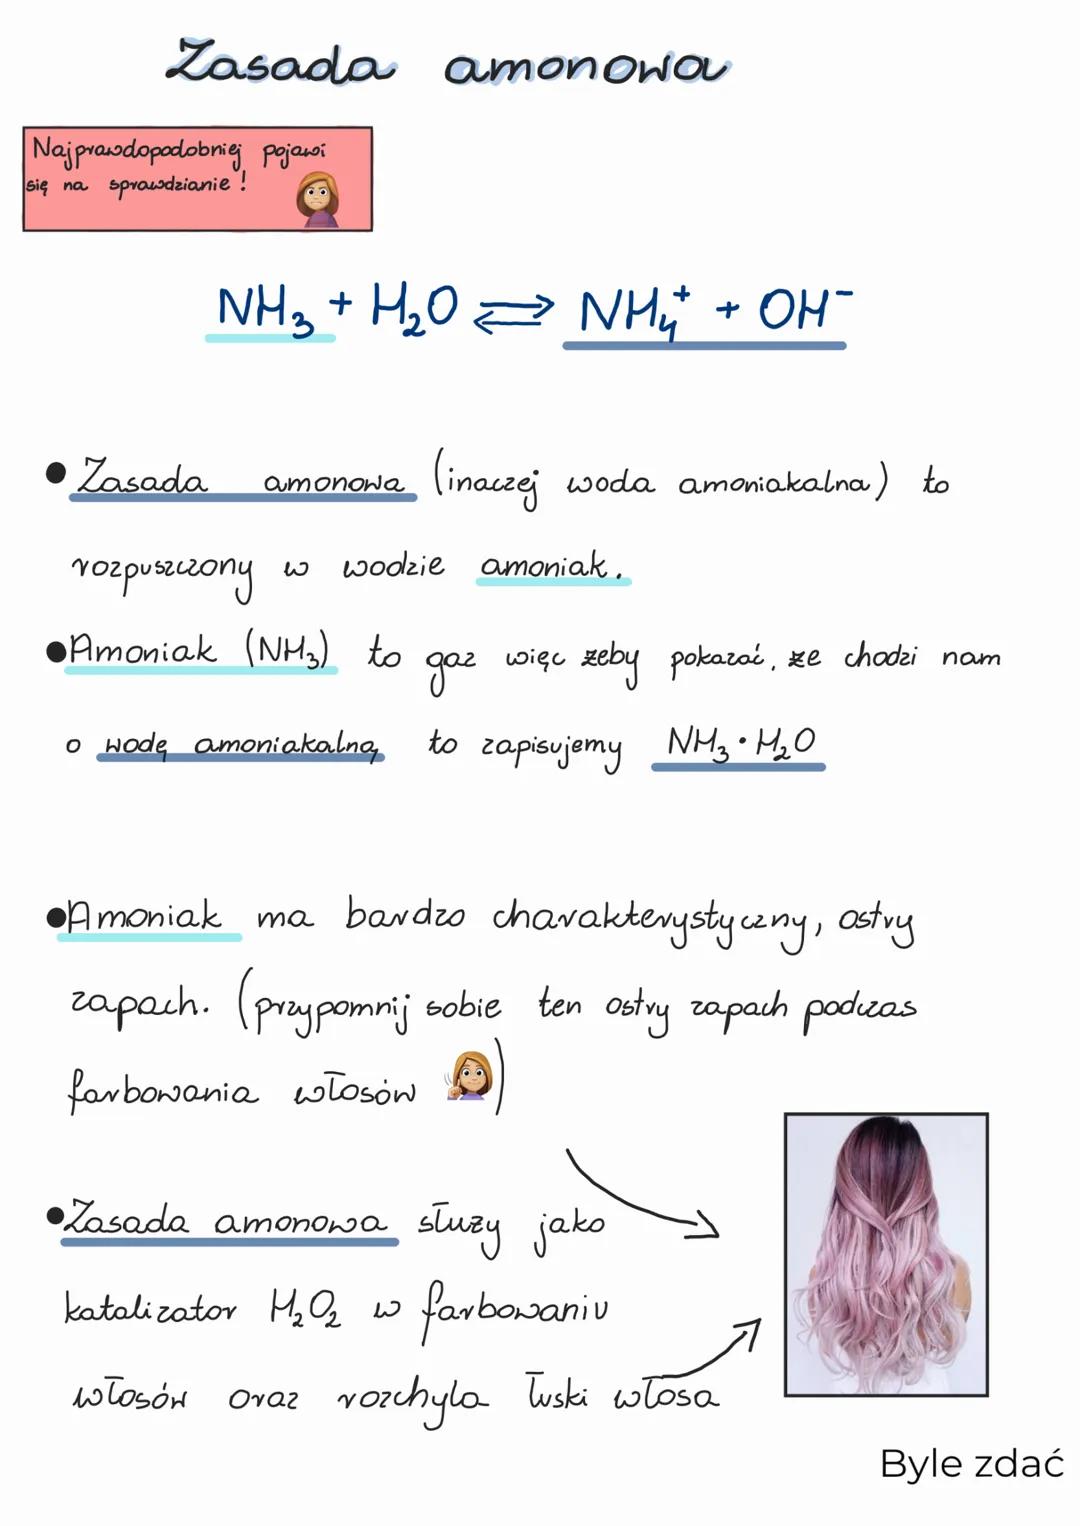 Zasada amonowa
Najprawdopodobniej pojawi
się na sprawdzianie!
NH₃ + H₂O ⇌ NH₄⁺ + OH⁻
• Zasada amonowa (inaczej woda amoniakalna) to
rozpuszczony w wodzie amoniak.
• Amoniak (NH₃) to gaz więc żeby pokazać, że chodzi nam
o wodę amoniakalną to zapisujemy NH₃ · H₂O
• Amoniak ma bardzo charakterystyczny, ostry
zapach. (przypomnij sobie ten ostry zapach podczas
farbowania włosów)
• Zasada amonowa służy jako
katalizator H₂O₂ w farbowaniu
włosów oraz rozchyla łuski włosa
Byle zdać